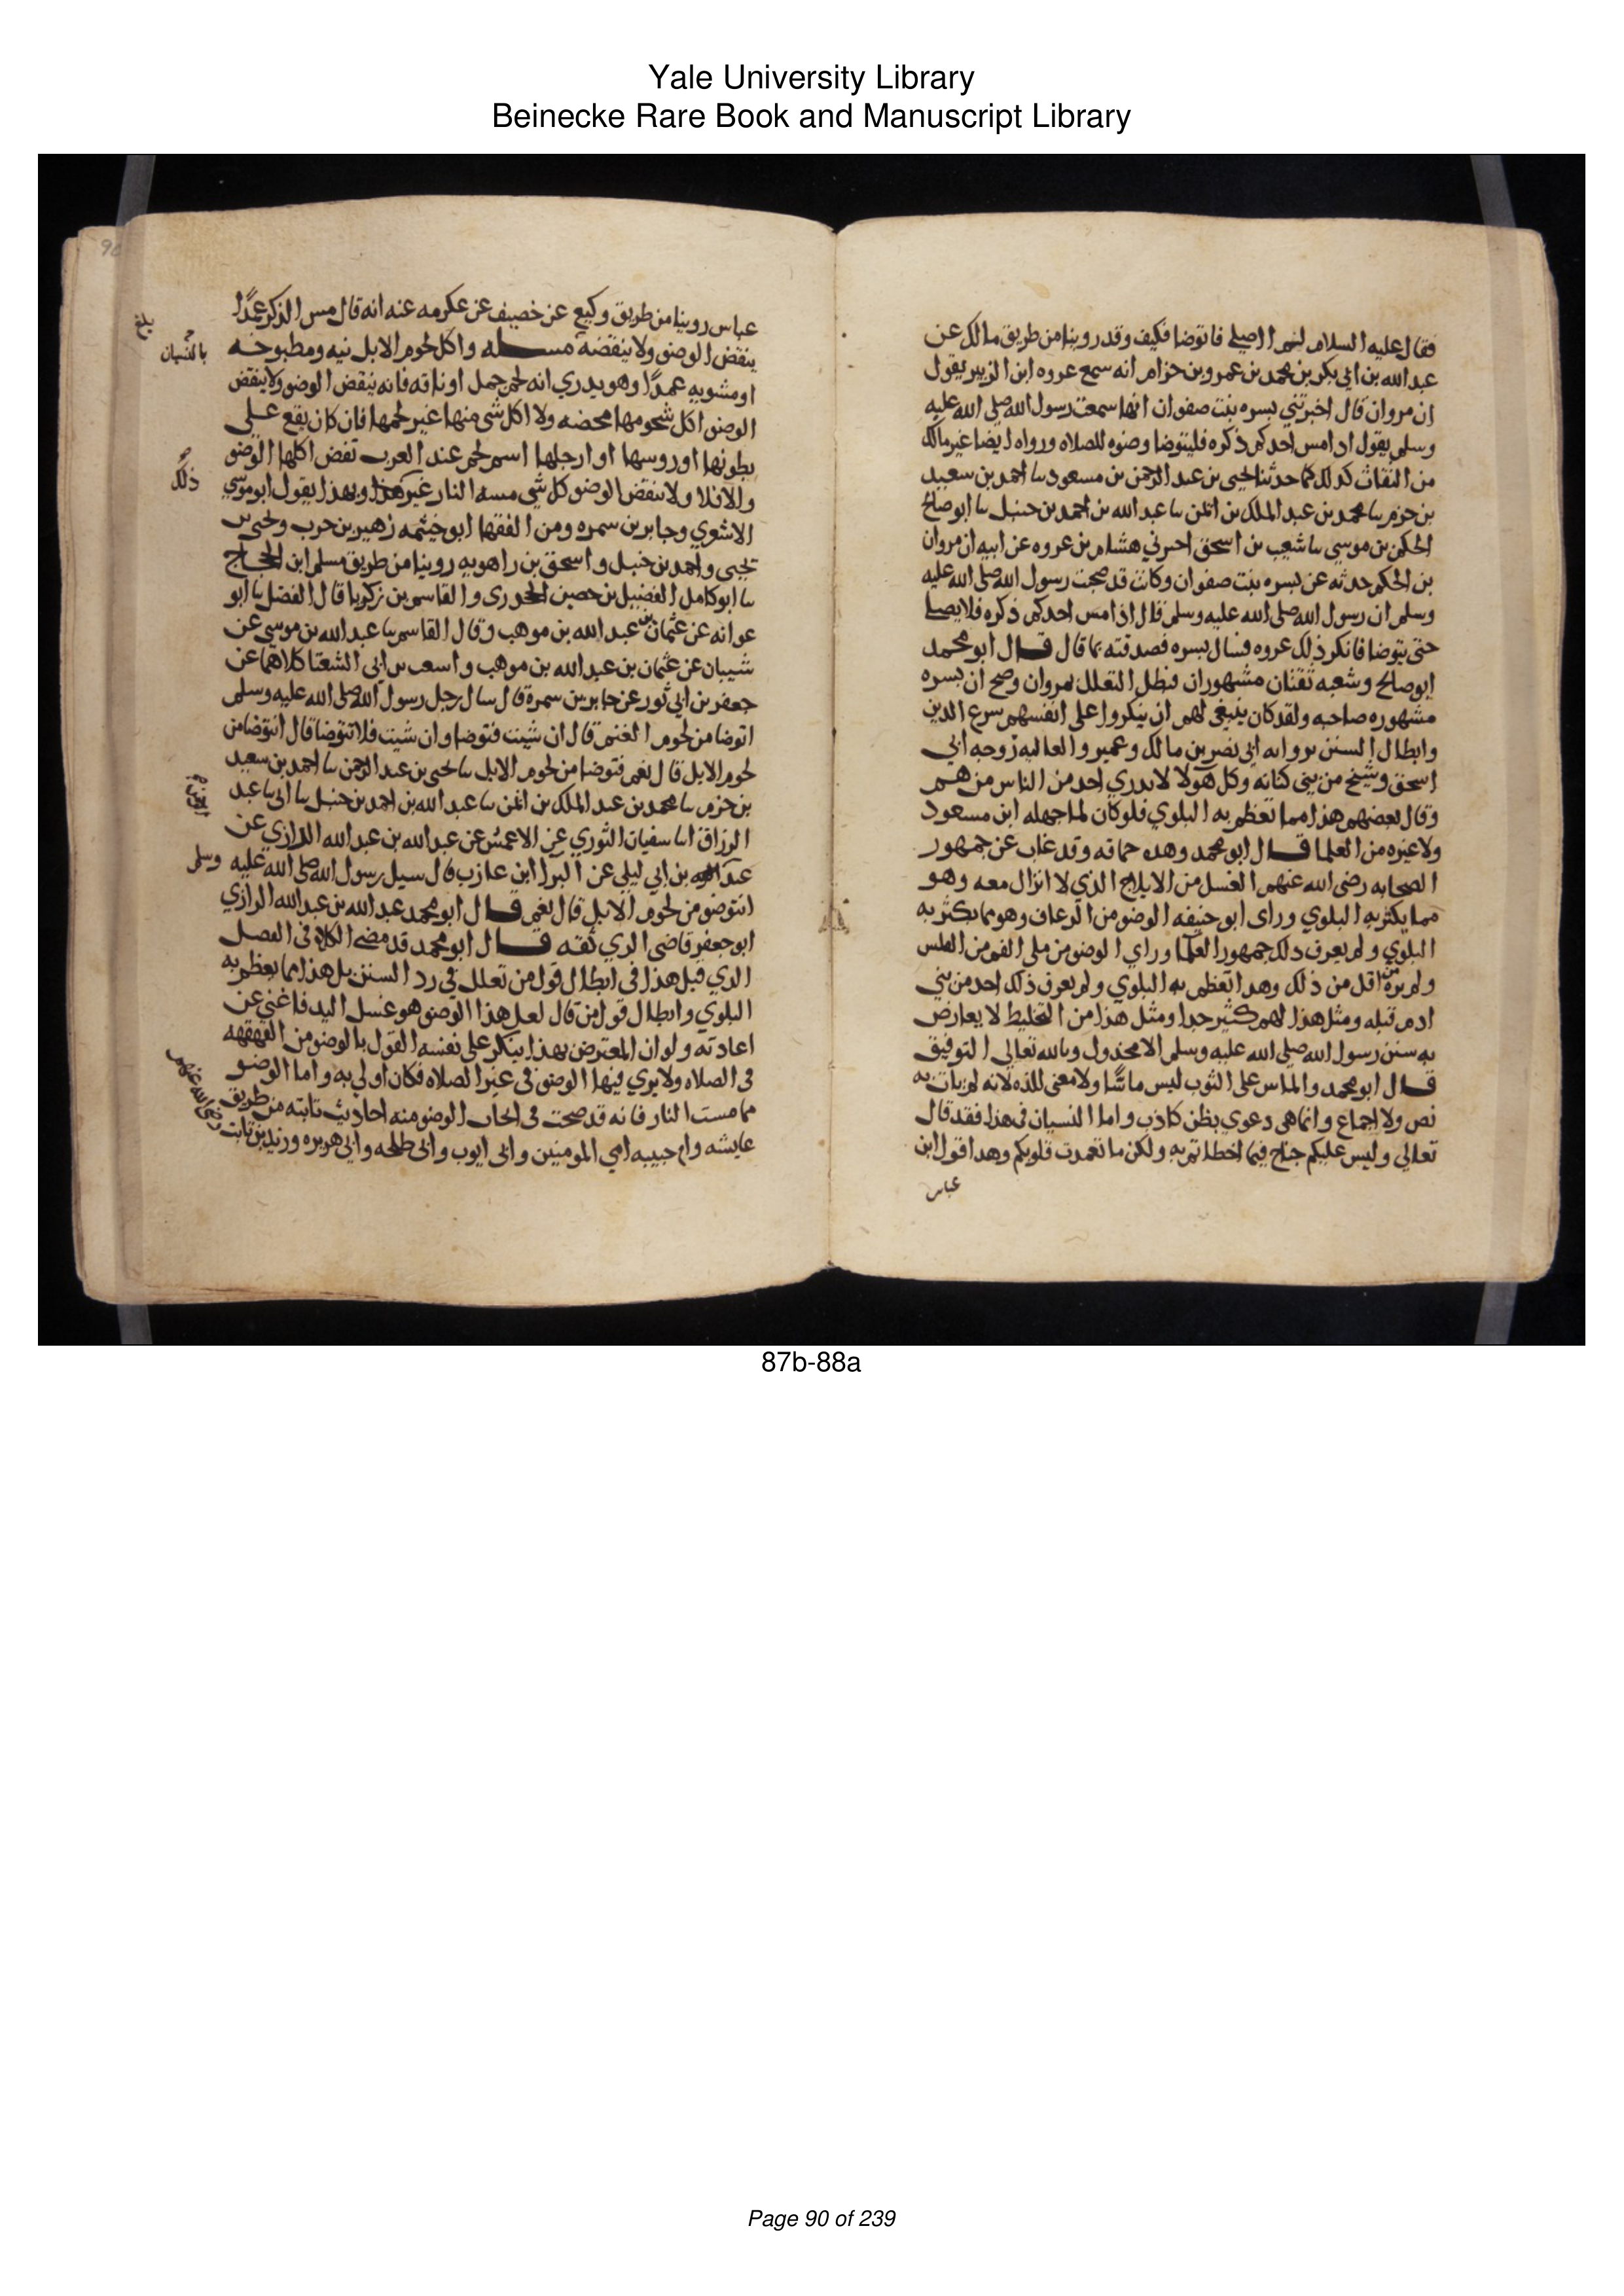 Yale University Library
Beinecke Rare Book and Manuscript Library
فقال عليه السلام لنعم اصلي فاتوضا فكيف وقد روينا من طريق مالك عن
عبد الله بن ابي بكر بن محمد بن عمرو بن حزام انه سمع عروه ابن الزبير يقول
ان مروان قال اخبرتني بسره بنت صفوان انها سمعت رسول الله صلى الله عليه
وسلم يقول اذا مس احدكم ذكره فليتوضا وضوه للصلاه ورواه ايضا غير مالك
من الثقات كذلك كما حدثنا يحيى بن عبد الرحمن بن مسعود نا احمد بن سعيد
بن حزم نا محمد بن عبد الملك بن ايمن نا عبد الله بن احمد بن حنبل نا ابو صالح
الحكم بن موسى نا شعيب بن اسحق اخبرني هشام بن عروه عن ابيه ان مروان
بن الحكم حدثه عن بسره بنت صفوان وكانت قد صحبت رسول الله صلى الله عليه
وسلم ان رسول الله صلى الله عليه وسلم قال اذا مس احدكم ذكره فلا يصلي
حتى يتوضا فانكر ذلك عروه فسال بسره فصدقته بما قال قال ابو محمد
ابو صالح وشعبه ثقتان مشهوران فبطل التعلل بمروان وصح ان بسره
مشهوره صاحبه ولقد كان ينبغي لهم ان ينكروا على انفسهم سرع الدين
وابطال السنن بروايه ابي نصر بن مالك وعمير والعاليه زوجه ابي
اسحق وشيخ من بني كنانه وكل هولا لا يدري احد من الناس من هم
وقال بعضهم هذا مما تعظم به البلوي فلو كان لما جهله ابن مسعود
ولا غيره من العلما قال ابو محمد وهذه حماقه وقد غاب عن جمهور
الصحابه رضى الله عنهم الغسل من الايلاج الذي لا انزال معه وهو
مما يكثر به البلوي وراى ابو حنيفه الوضو من الرعاف وهو مما يكثر به
البلوي ولم يعرف ذلك جمهور العلما وراي الوضو من ملي الفم من القلس
ولم يره من اقل من ذلك وهذا تعظم به البلوي ولم يعرف ذلك احد من بني
ادم قبله ومثل هذا لهم كثير جدا ومثل هذا من التخليط لا يعارض
به سنن رسول الله صلى الله عليه وسلم الا مخذول وبالله تعالى التوفيق
قال ابو محمد والماس على الثوب ليس ماسًا ولا معنى للذه لانه لم يات به
نص ولا اجماع وانما هى دعوي بظن كاذب واما النسيان في هذا فقد قال
تعالى وليس عليكم جناح فيما اخطاتم به ولكن ما تعمدت قلوبكم وهذا قول ابن
عباس
عباس روينا من طريق وكيع عن خصيف عن عكرمه عنه انه قال مس الذكر عمدًا
بلغ
ينقض الوضو ولا ينقضه مسله واكل لحوم الابل نيه ومطبوخه
بالنسيان
او مشويه عمدًا وهو يدري انه لحم جمل او ناقه فانه ينقض الوضو ولا ينقض
الوضو اكل شحومها محضه ولا اكل شى منها غير لحمها فان كان يقع على
بطونها او روسها او ارجلها اسم لحم عند العرب نقض اكلها الوضو
والا فلا ولا ينقض الوضو كل شى مسه النار غير وبهذا يقول ابو موسي
ذلك
الاشوي وجابر بن سمره ومن الفقها ابو خيثمه زهير بن حرب ويحيى بن
يحيى واحمد بن حنبل واسحق بن راهويه روينا من طريق مسلم ابن الحجاج
نا ابو كامل الفضيل بن حصين الجحدرى والقاسم بن زكريا قال الفضل نا ابو
عوانه عن عثمان بن عبد الله بن موهب وقال القاسم نا عبد الله بن موسى عن
شيبان عن عثمان بن عبد الله بن موهب واسعب بن ابي الشعثا كلاهما عن
جعفر بن ابي ثور عن جابر بن سمرة قال سال رجل رسول الله صلى الله عليه وسلم
اتوضا من لحوم الغنم قال ان شيت فتوضا وان شيت فلا تتوضا قال اتوضا من
لحوم الابل قال نعم فتوضا من لحوم الابل نا يحيى بن عبد الرحمن نا احمد بن سعيد
بن حزم نا محمد بن عبد الملك بن ايمن نا عبد الله بن احمد بن حنبل نا ابى نا عبد
الرزاق انا سفيان الثوري عن الاعمش عن عبد الله بن عبد الله الرازي عن
عبد بن ابي ليلى عن البرا ابن عازب قال سيل رسول الله صلى الله عليه وسلم
انتوضو من لحوم الابل قال نعم قال ابو محمد عبد الله بن عبد الله الرازي
ابو جعفر قاضى الري ثقه قال ابو محمد قد مضى الكلام في الفصل
الذي قبل هذا في ابطال قول من تعلل في رد السنن بل هذا مما يعظم به
البلوي وابطال قول من قال لعل هذا الوضو هو غسل اليد فاغنى عن
اعادته ولو ان المعترض بهذا ينكر على نفسه القول بالوضو من القهقهه
فى الصلاه ولا يري فيها الوضو فى غير الصلاه فكان اولى به واما الوضو
مما مست النار فانه قد صحت فى ايجاب الوضو منه احاديث ثابته من طريق
عايشه وام حبيبه امي المومنين وابى ايوب وابى طلحه وابي هريره وزيد بن ثابت
رضى الله عنهم
87b-88a
Page 90 of 239